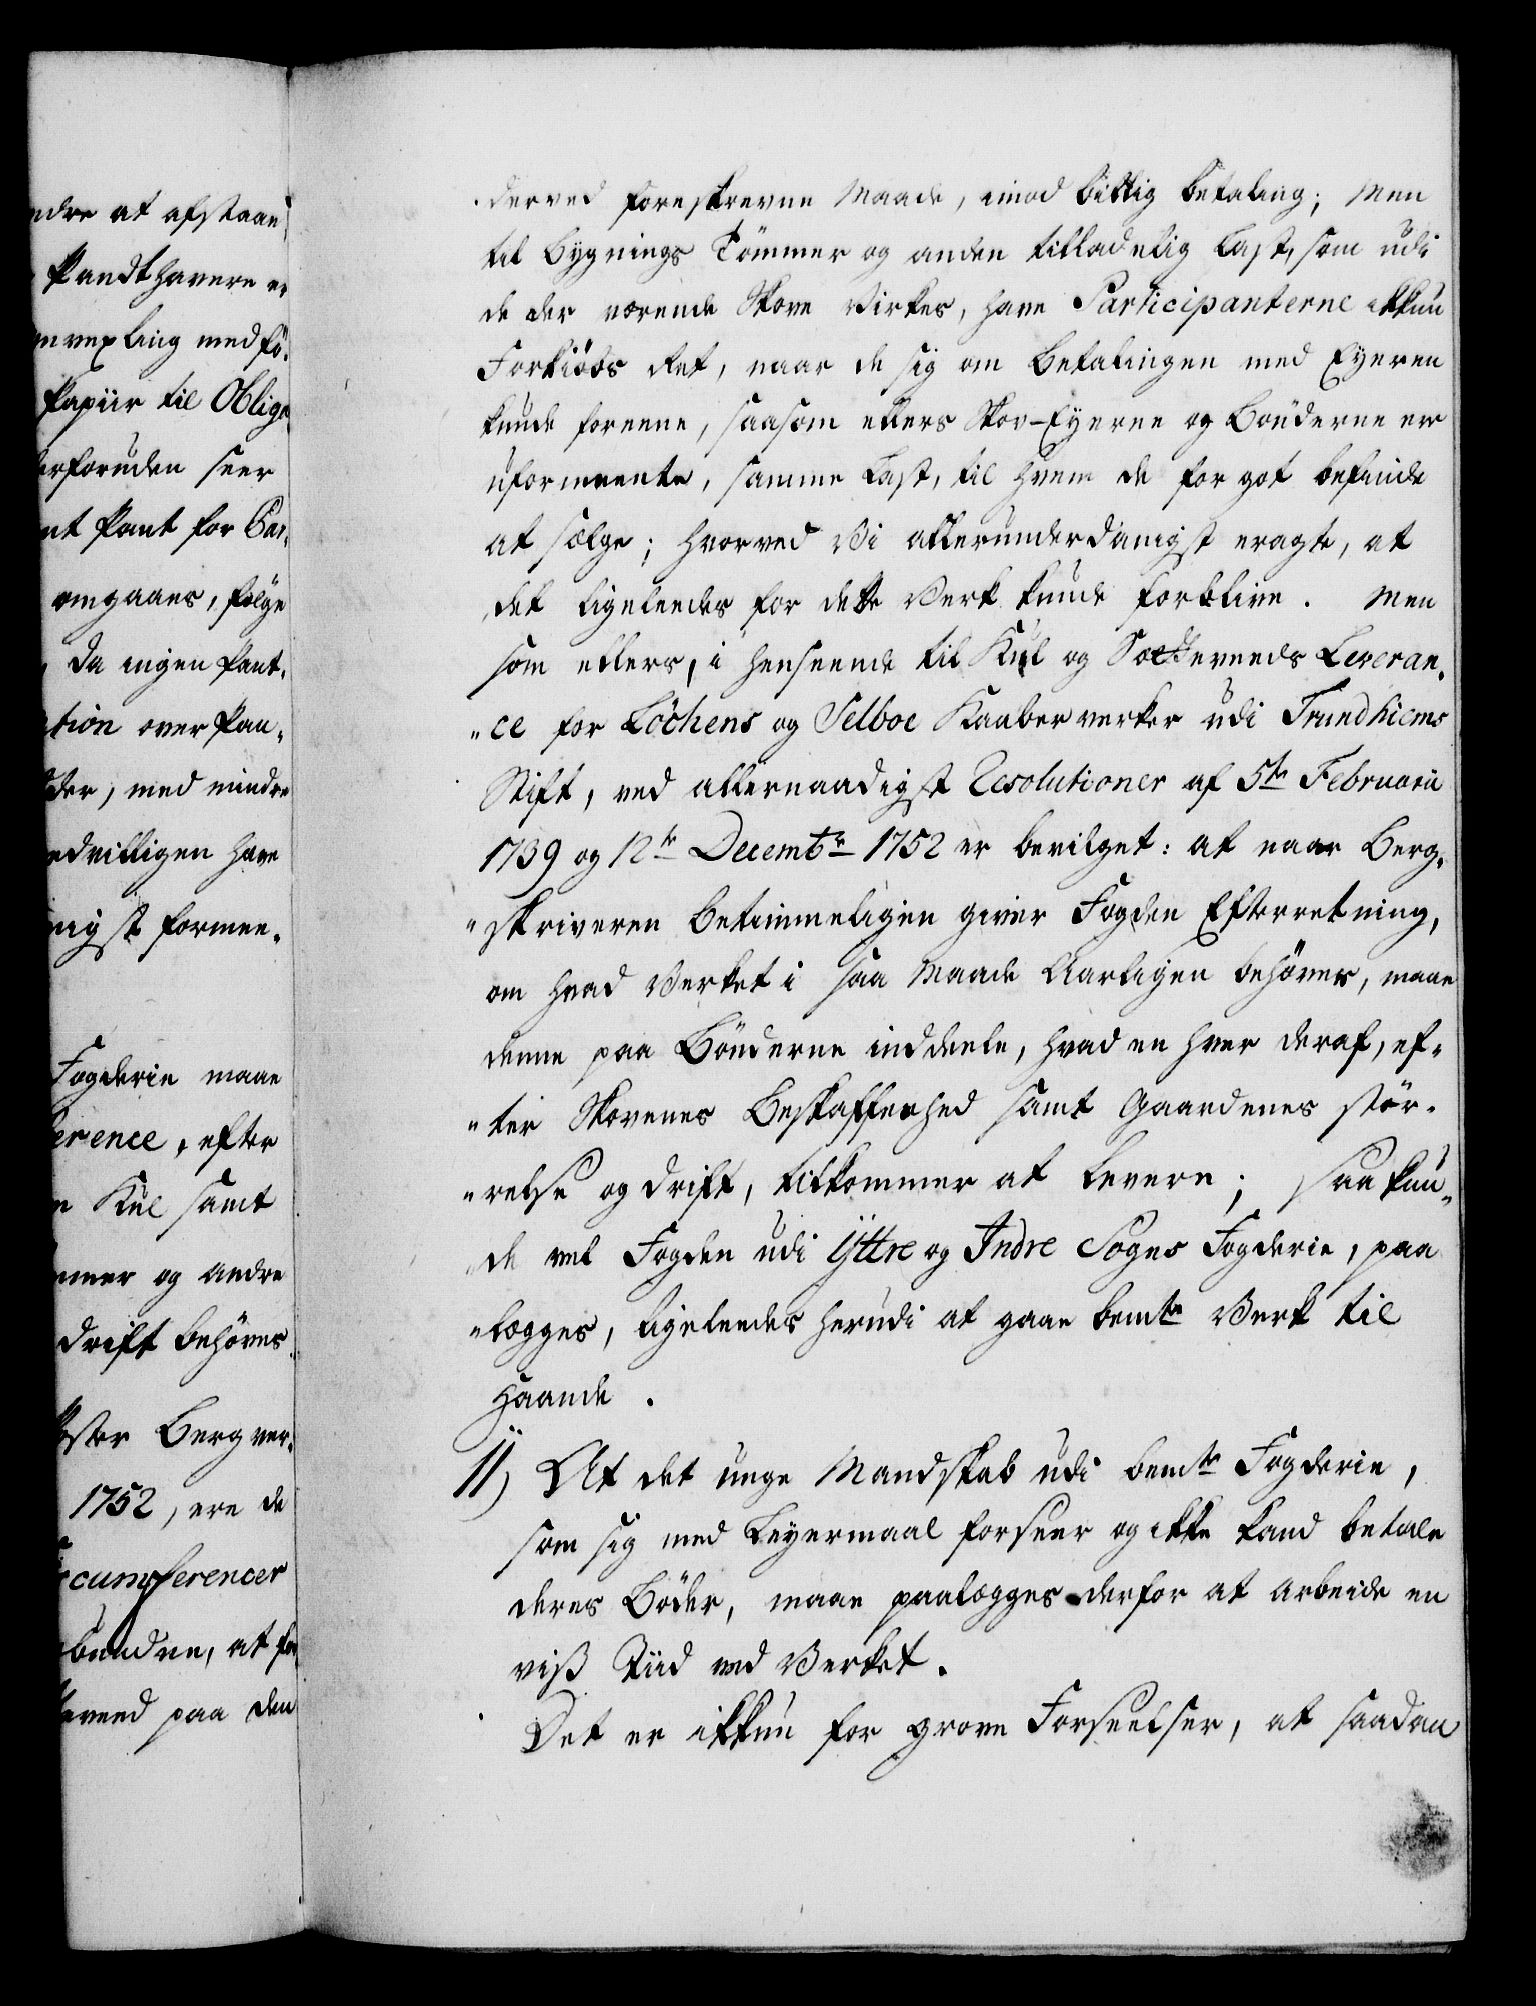 ndre at afstaae,
Pandthavere er
mvexling medfø-
Papiir til Oblig
erforuden seer
nt Pant for
omgaaes, følge
da ingen Pant-
tion over Pan-
der, med mindre
edvilligen have
nigst formee-
Fogderie maae
ference, efter
Kul samt
mmer og andre
drift behøves
Bergver-
1752, ere de
cumferencer
bundne, at
veed paa den
derved foreskrevne Maade, imod billig betaling; Men
til Bygnings Tømmer og anden tilladelig Last, som udi
de der værende Skove Virkes, have Participanterne ikkun
Forkiøbs Ret, naar de sig om Betalingen med Eyeren
kunde foreene, saasom ellers Skov-Eyerne og Bønderne ere
uformeente, samme Last, til hvem de for got befinde
at sælge; hvorved Vi allerunderdanigst eragte, at
det ligeleedes for dette Verk kunde forblive. Men
som ellers, i henseende til Kul og Sætteveeds Leveran-
"ce for Löchens og Selboe Kaaberverker udi Trundhiems
Stift, ved allernaadigst Resolutioner af 5te Februarii
1739 og 12te Decembr 1752 er bevilget: at naar Berg-
"skriveren betimmeligen giver Fogden Efterretning,
om hvad Verket i saa Maade Aarligen behøver, maae
denne paa Bønderne inddeele, hvad en hver deraf, ef-
"ter Skovenes Beskaffenhed samt Gaardenes stør-
"relse og drift, tilkommer at levere; saa kun-
"de vel Fogden udi Yttre og Indre Sogns Fogderie, paa
"lægges, ligeleedes herudi at gaae bemte Verk til
Haande.
11) At det unge Mandskab udi bemte Fogderie,
som sig med Leyermaal forseer og ikke kand betale
deres Bøder, maae paalægges derfor at arbeide en
viß Tiid ved Verket.
Det er ikkun for grove Forseelser, at saadan